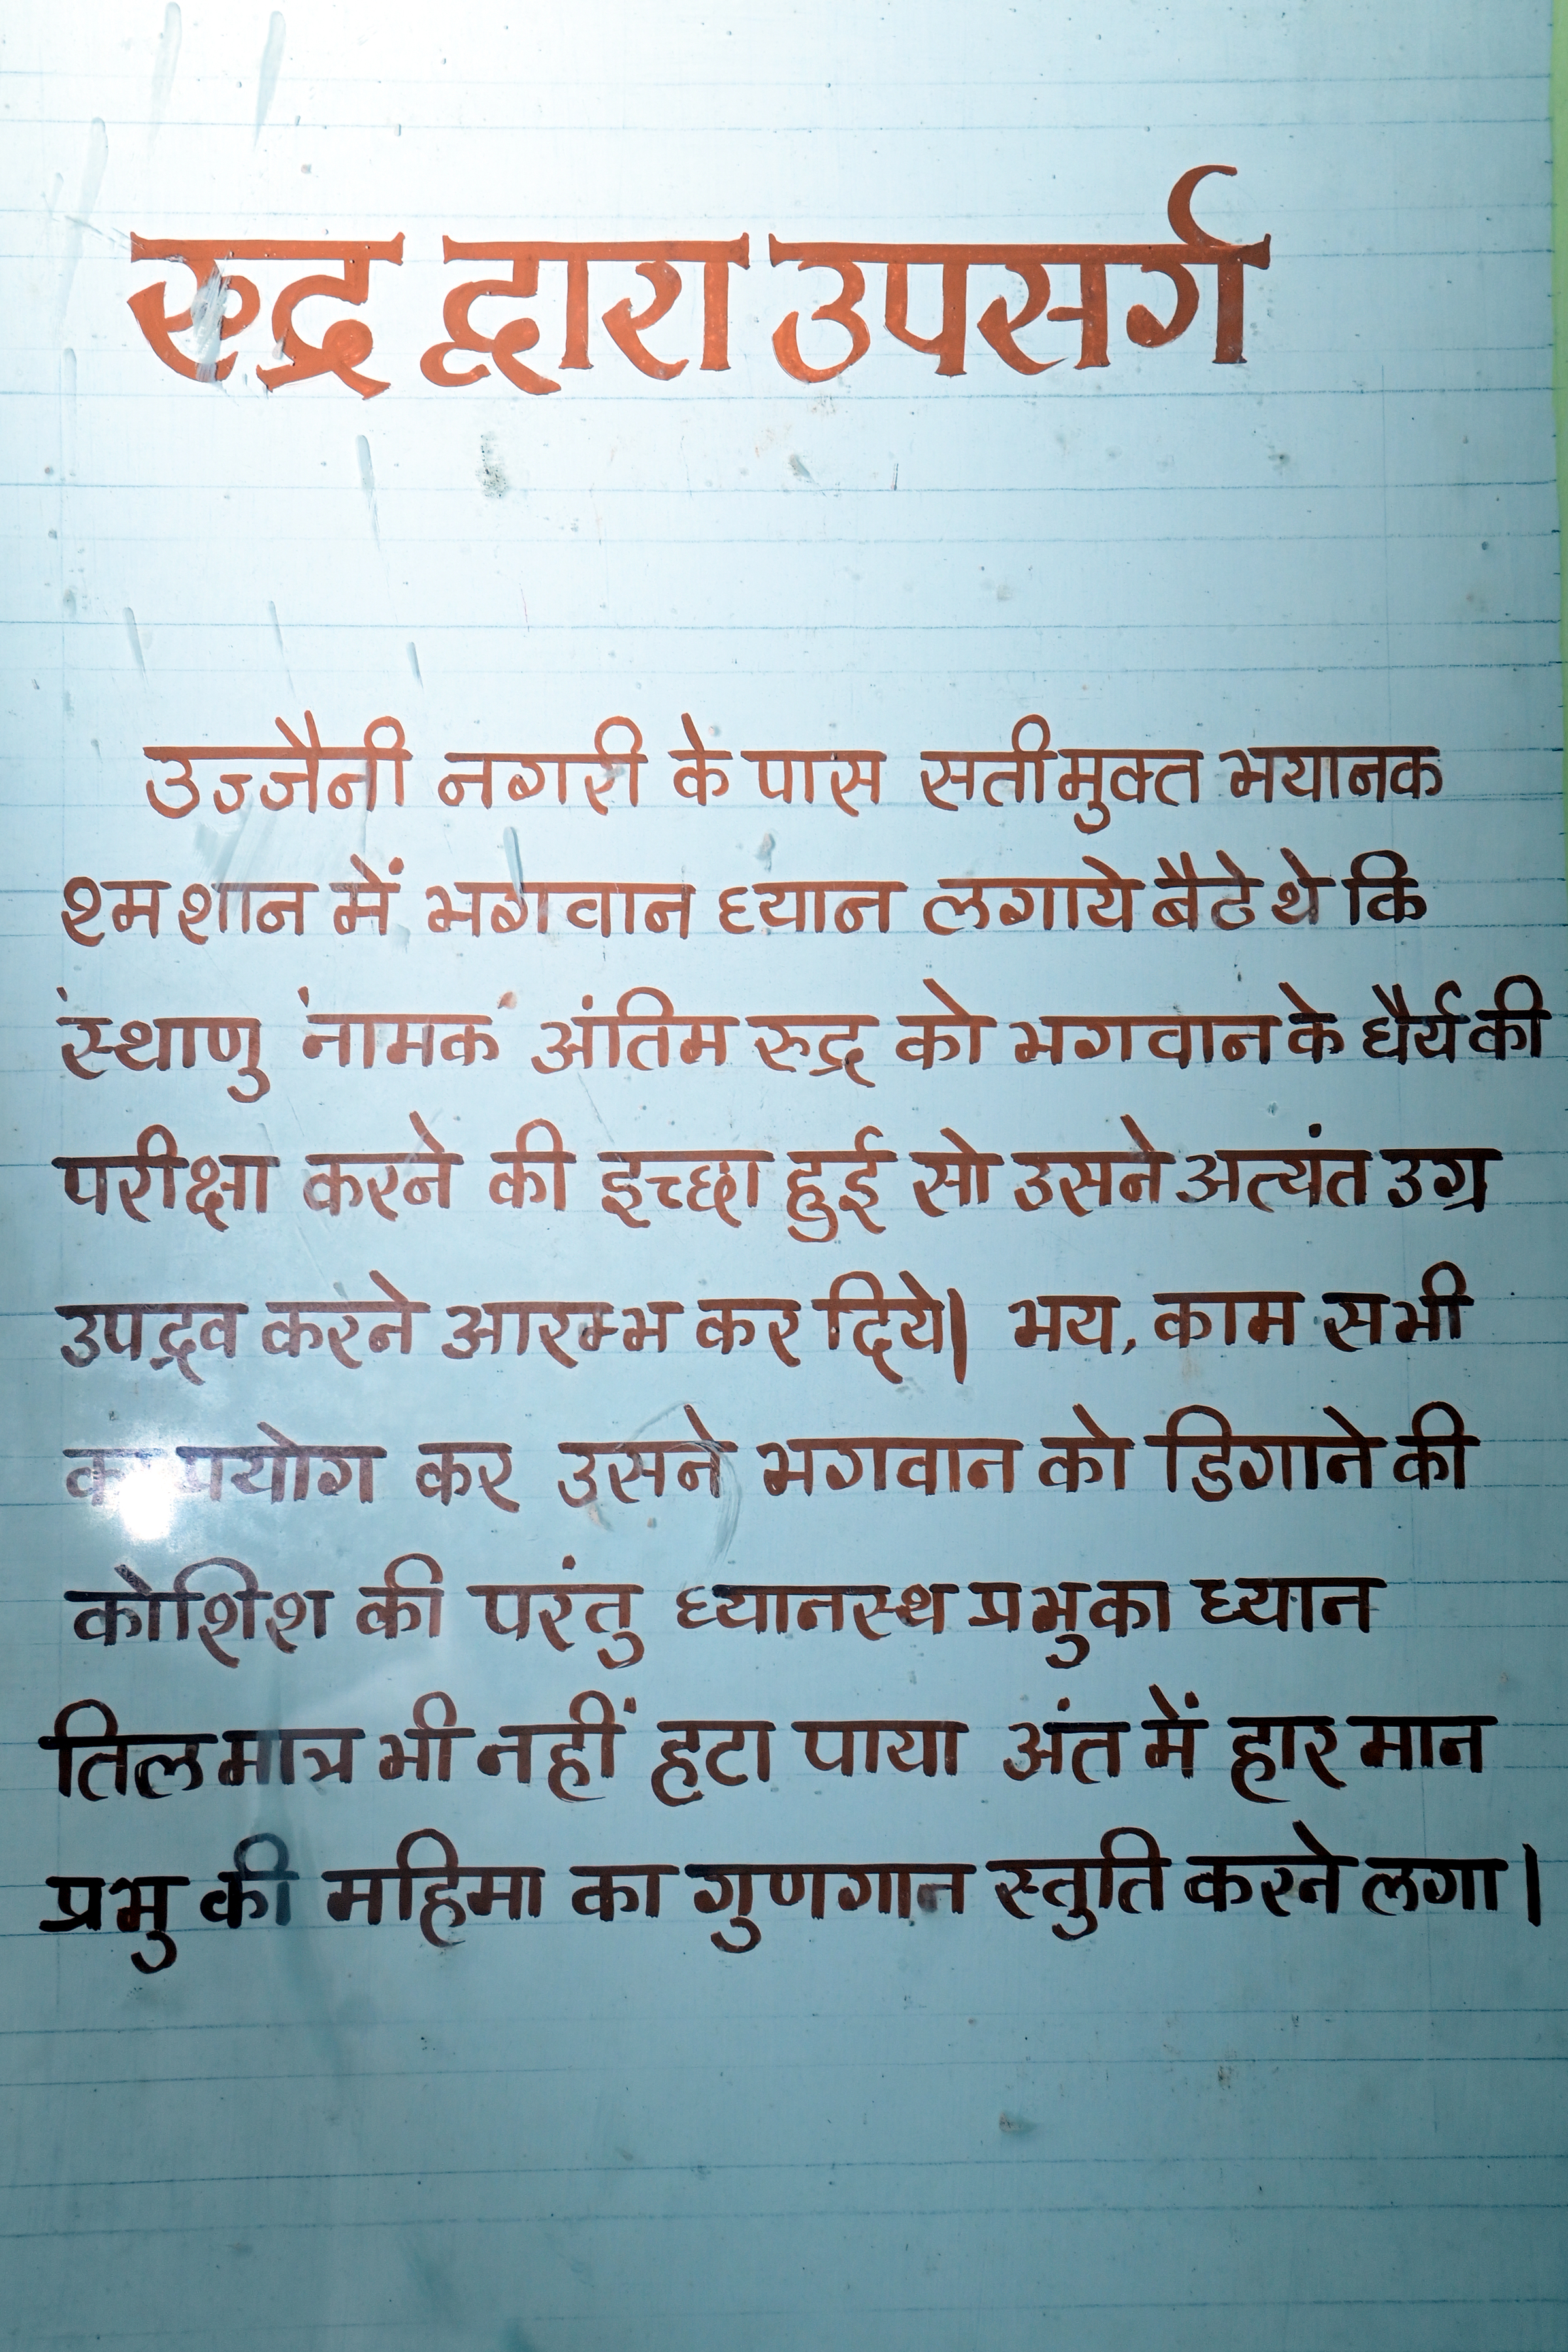 रुद्र द्वारा उपसर्ग
उज्जैनी नगरी के पास सतीमुक्त भयानक
श्मशान में भगवान ध्यान लगाये बैटे थे कि
'स्थाणु' नामक अंतिम रुद्र को भगवान के धैर्य की
परीक्षा करने की इच्छा हुई सो उसने अत्यंत उग्र
उपद्रव करने आरम्भ कर दिये| भय, काम सभी
का प्रयोग कर उसने भगवान को डिगाने की
कोशिश की परंतु ध्यानस्थ प्रभु का ध्यान
तिलमात्र भी नहीं हटा पाया अंत में हार मान
प्रभु की महिमा का गुणगान स्तुति करने लगा |